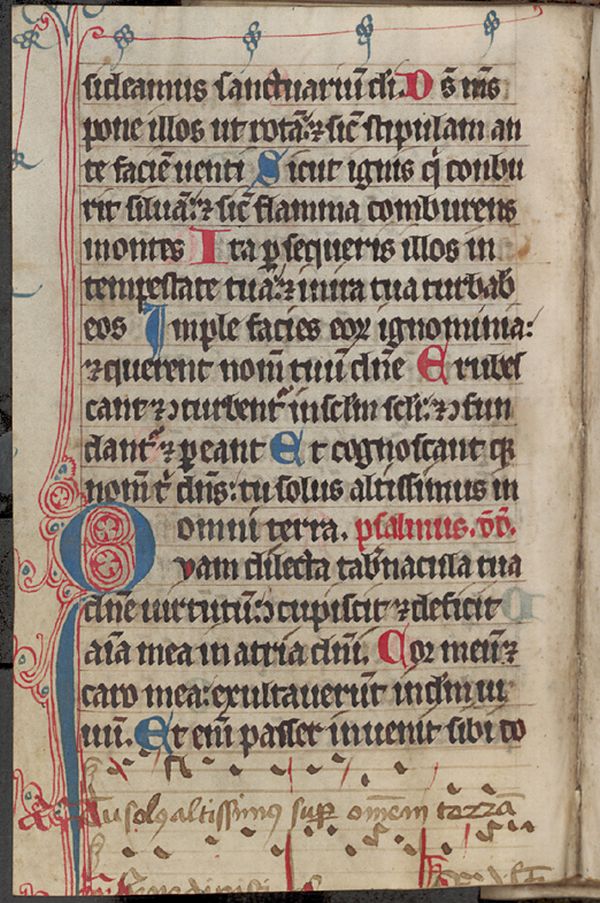 sideamus sanctuariū di. D s̄ ms̄
pone illos ut rotā: ⁊ sic̄ stipulam an
te faciē uenti Sicut ignis q̄ conbu
rit siluā: ⁊ sic̄ flamma comburens
montes Ita ꝑsequeris illos in
tempestate tua: ⁊ in ira tua turbab
eos Imple facies eoꝝ ignominia:
⁊ querent nom̄ tuū dn̄e Erubes
cant ⁊ ↄturbent᷑ in sclm̄ scli: ⁊ ↄfun
dant᷑ ⁊ ꝑeant Et cognoscant qꝫ
nom̄ t̄ dn̄s: tu solus altissimus in
omni terra. psalmus. dd̄.
Qvam dilecta tab̄nacula tua
dn̄e uirtutū: ↄcupiscit ⁊ deficit
aīa mea in atria dn̄i. Cor meū ⁊
caro mea: exultauerūt in dm̄ ui
uū. Et em̄ passer inuenit sibi do
Tu solus altissimus suꝑ om̄em terrā